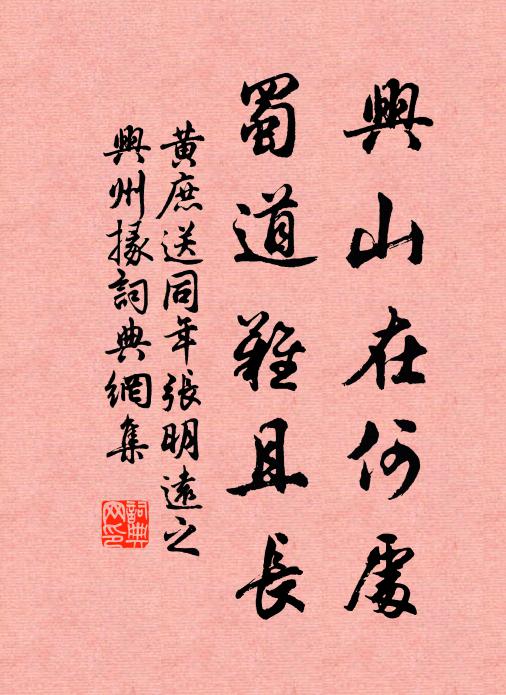 興山在何處
蜀道難且長
黃庶送同年張明遠之
興州掾詞典網集
詞典网印